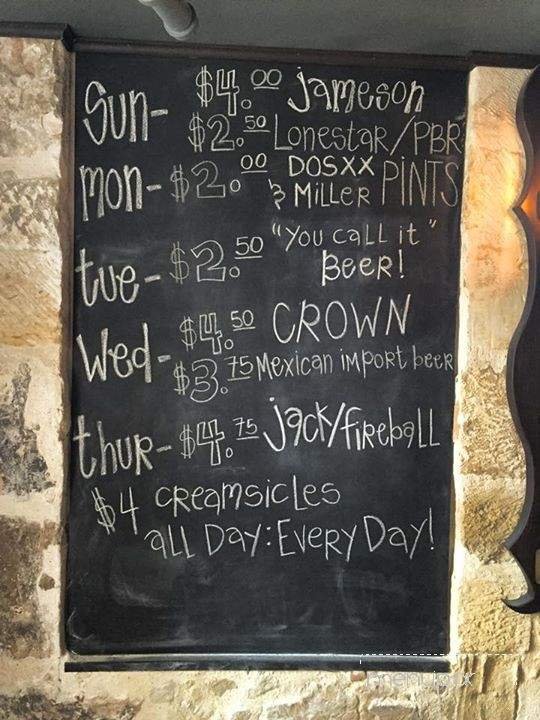 Sun- $4.00 jameson
$2.50 Lonestar/PBR
mon- $2.00 DOSXX & MiLLER PiNTS
tue- $2.50 "You call it" BEER!
Wed- $4.50 CROWN
$3.75 Mexican import beer
thur- $4.75 jack/fireball
$4 creamsicles
all Day: Every Day!